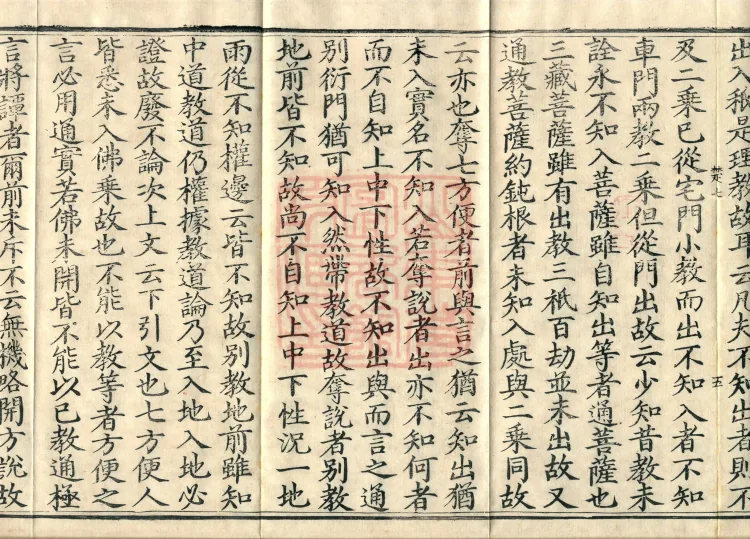 出入稱是理教故耳云凡夫不知出者則不
及二乗已從宅門小教而出不知入者不知
車門兩教二乗但從門出故云少知昔教未
詮永不知入菩薩雖自知出等者通菩薩也
三藏菩薩雖有出教三祇百劫並未出故又
通教菩薩約鈍根者未知入處與二乗同故
云亦也奪七方便者前與言之猶云知出猶
未入實名不知入若奪說者出亦不知何者
而不自知上中下性故不知出與而言之通
別衍門猶可知入然帶教道故奪說者別教
地前皆不知故尚不自知上中下性況一地
雨從不知權邊云皆不知故別教地前雖知
中道教道仍權據教道論乃至入地入地必
證故廢不論次上文云下引文也七方便人
皆悉未入佛乗故也不能以教等者方便之
言必用通實若佛未開皆不能以已教通極
言將譚者爾前未斥不云無機略開方說故
七
五